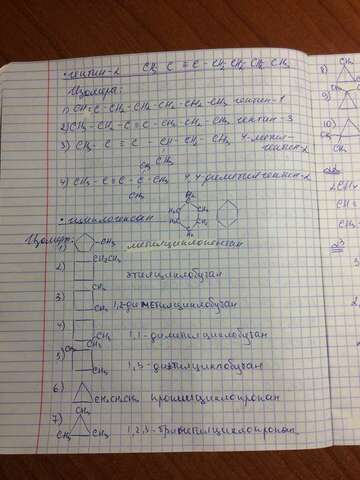 • гептин-2 CH₃ C ≡ C - CH₂ CH₂ CH₂ CH₃
Изомеры:
1) CH ≡ C - CH₂ - CH₂ - CH₂ - CH₂ - CH₃ гептин-1
2) CH₃ - CH₂ - C ≡ C - CH₂ - CH₂ - CH₃ гептин-3
3) CH₃ - C ≡ C - CH - CH₂ - CH₃ 4-метил-
CH₃
CH₃
4) CH₃ - C ≡ C - C - CH₃ 4,4 диметил
CH₃
• циклогексан
H₂C CH₂
H₂C CH₂
Изомеры:
1) CH₃ метилциклопентан
2) CH₂CH₃
этилциклобутан
3) CH₃
CH₃ 1,2-диметилциклобутан
4) CH₃
CH₃ 1,1-диметилциклобутан
5) CH₃
CH₃ 1,3-
6) CH₂CH₂CH₃ пропилциклопропан
7) CH₃
CH₃ CH₃ 1,2,3-триметилциклопропан
8)
9)
10)
CH₃